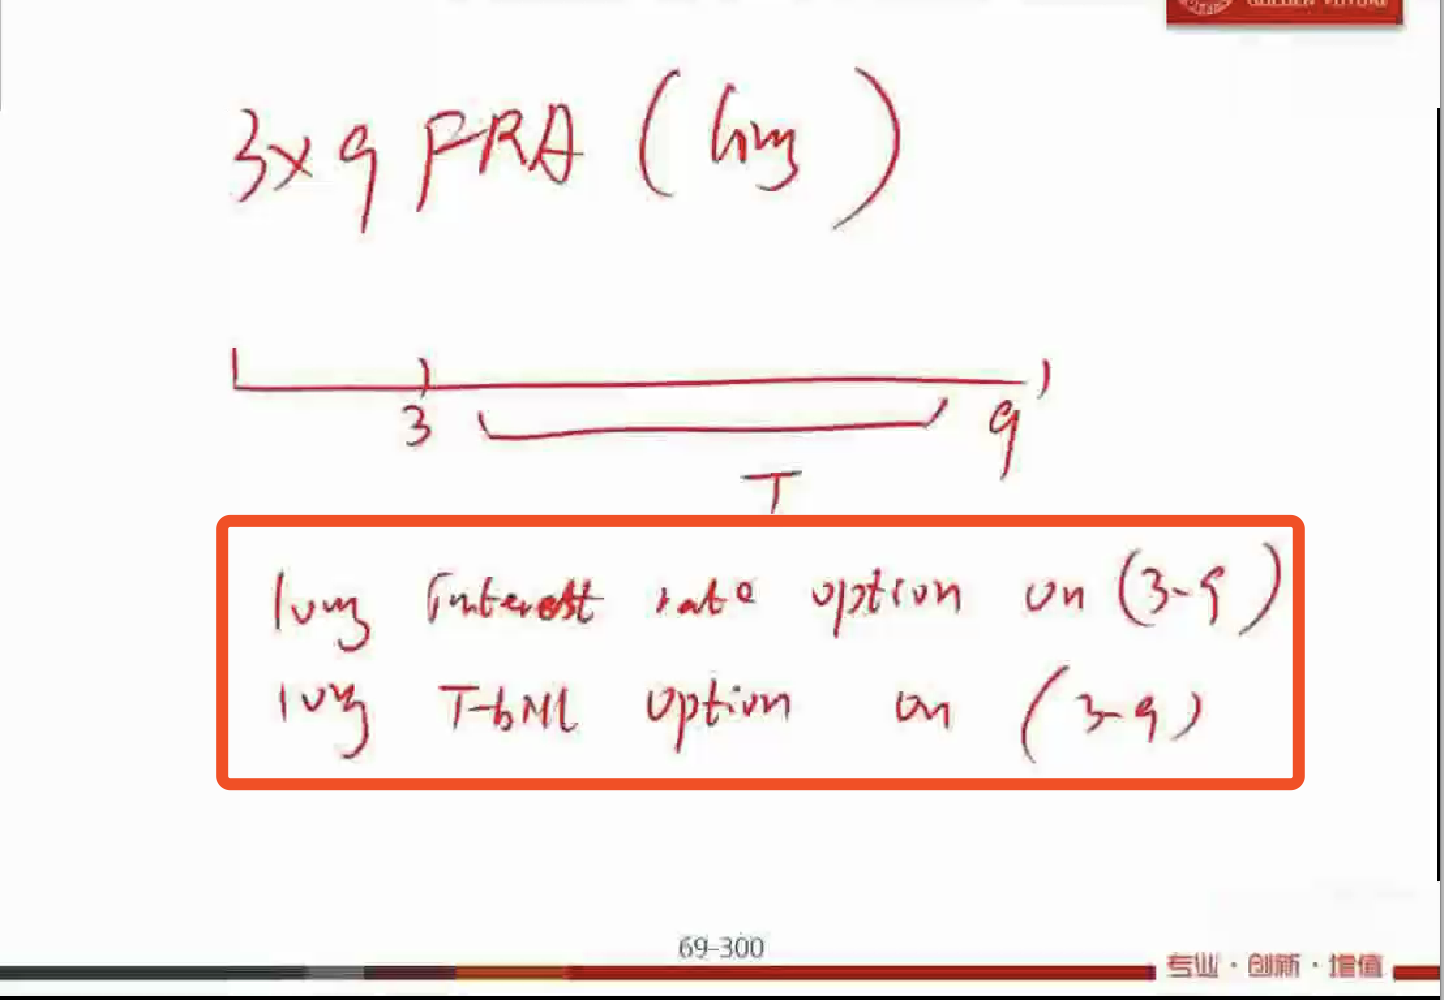 3×9 FRA (long)
3 9
T
long interest rate option on (3-9)
long T-bill option on (3-9)
69-300
专业·创新·增值